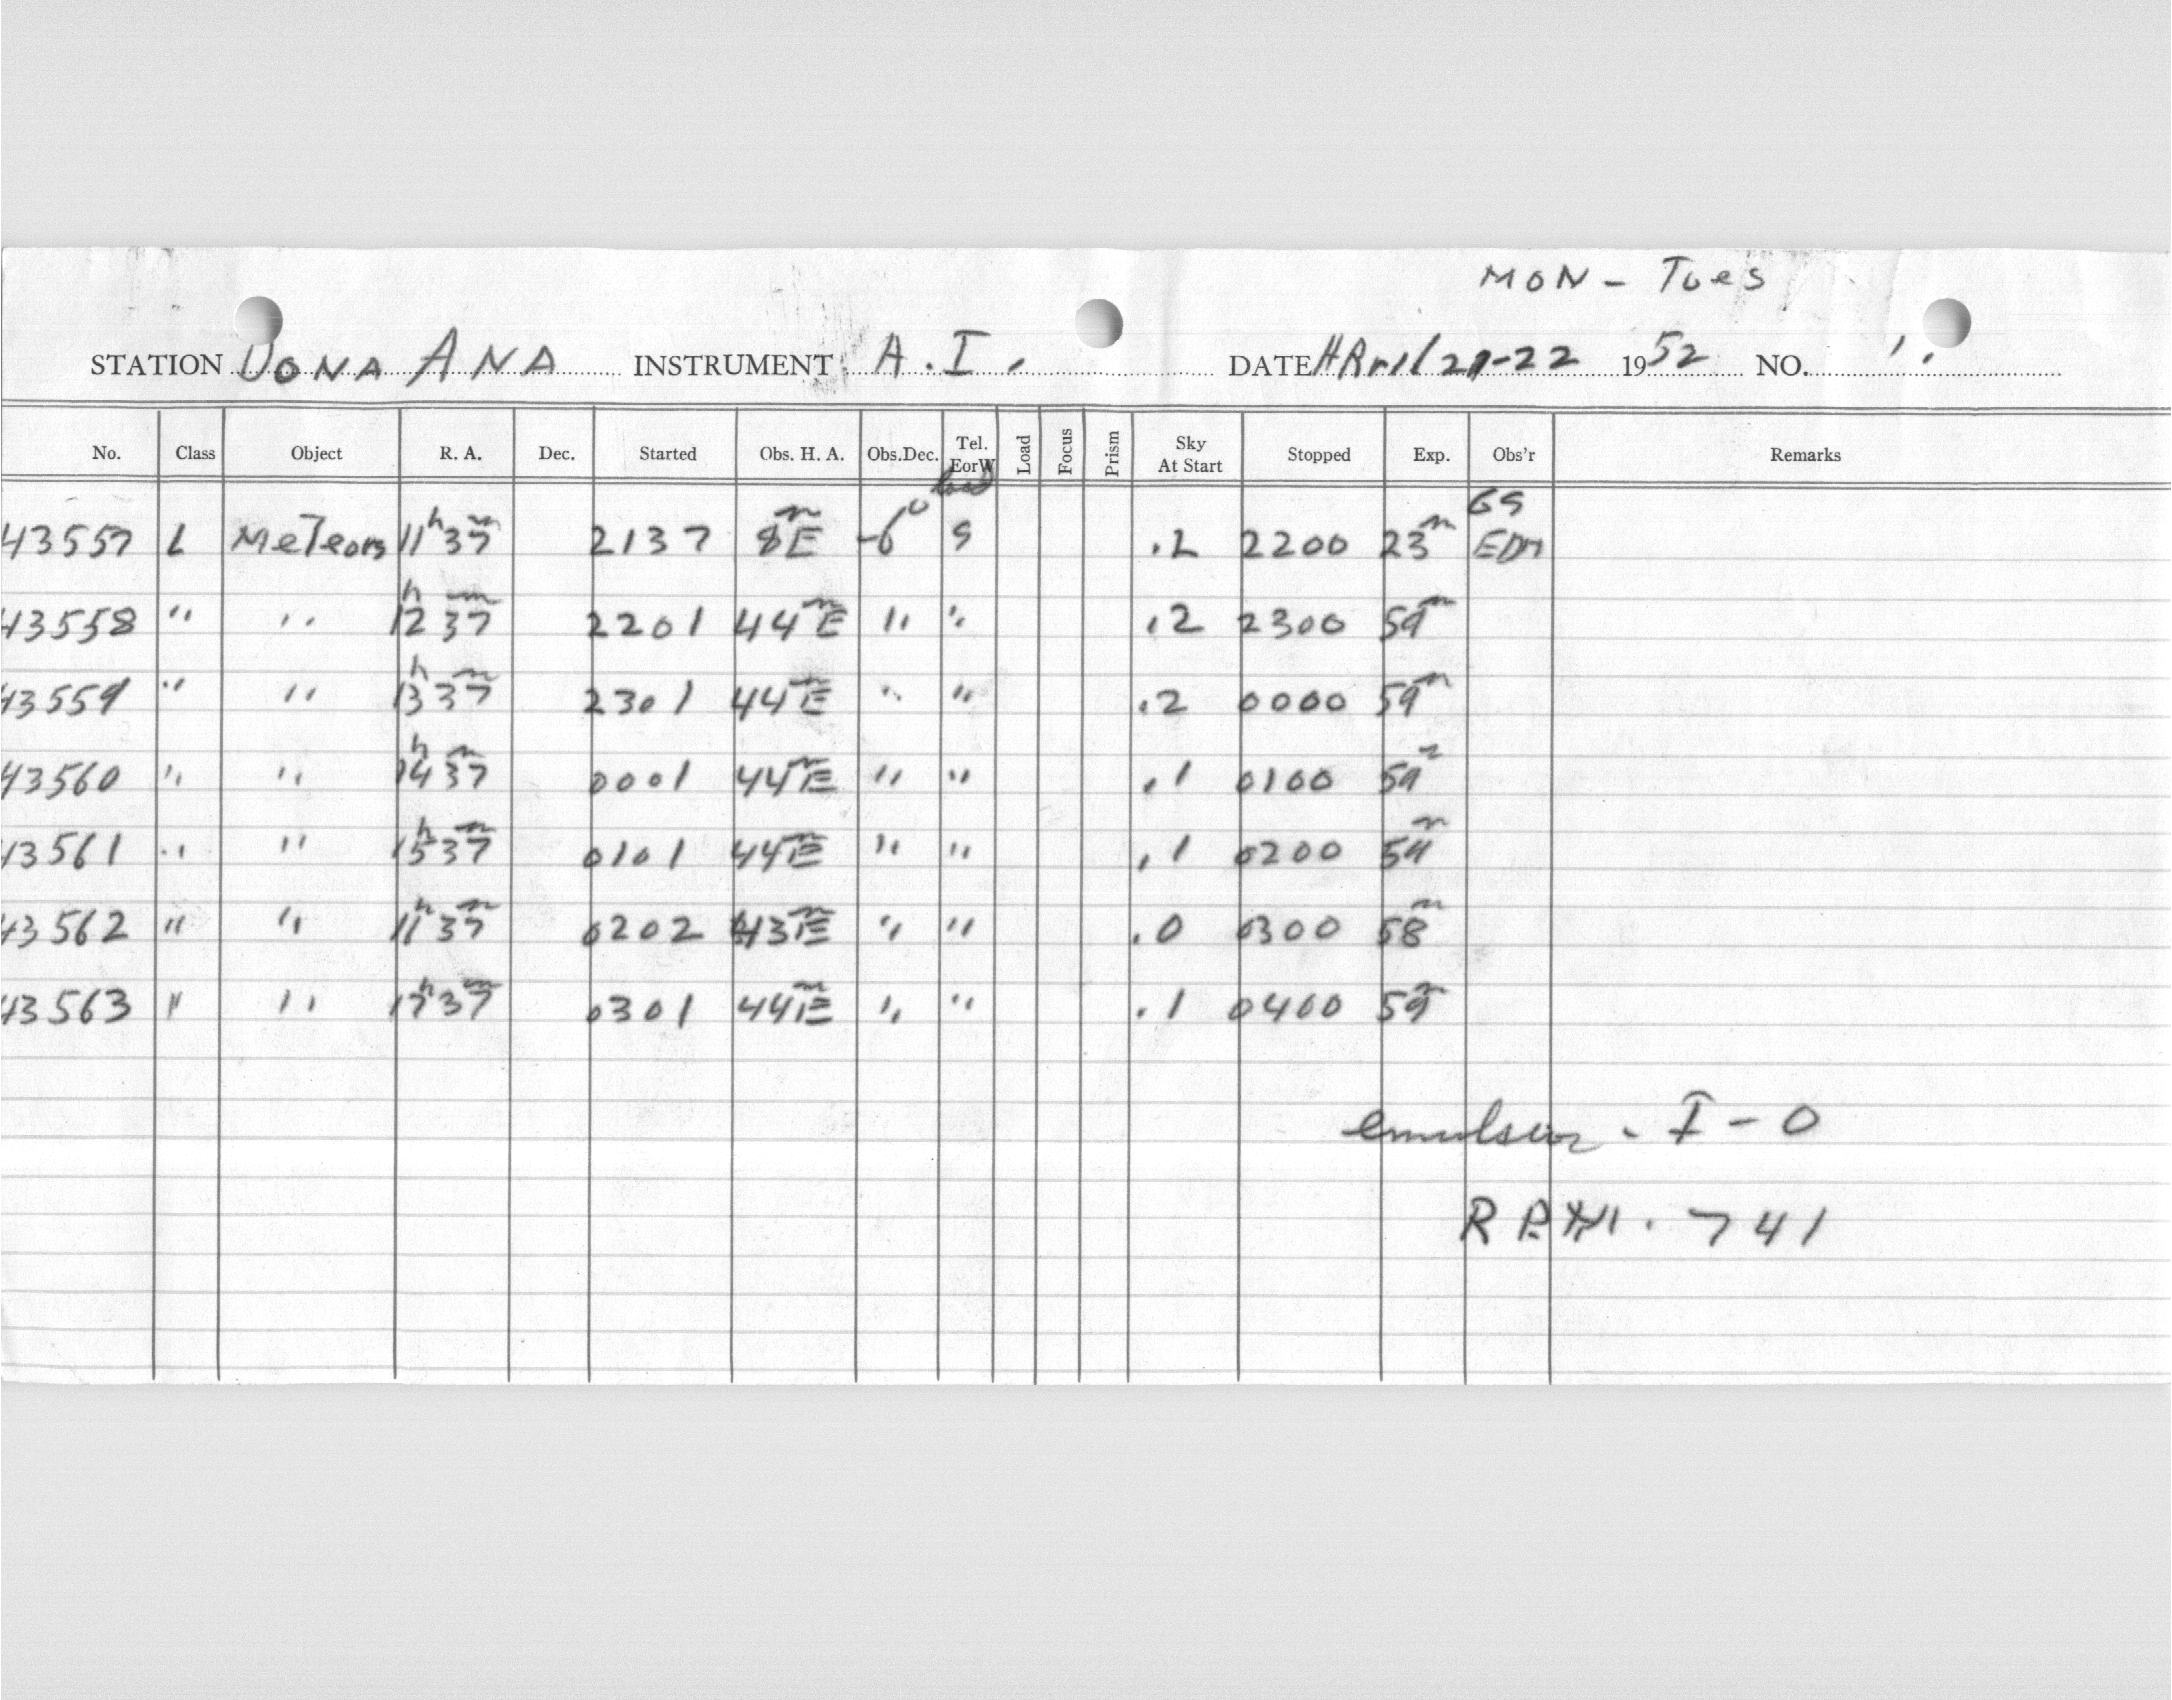 MON - Tues
STATION DONA ANA INSTRUMENT A.I. DATE APril 21-22 1952 NO. 1.
No. Class Object R. A. Dec. Started Obs. H. A. Obs.Dec. Tel. EorW Load Focus Prism Sky At Start Stopped Exp. Obs'r Remarks
load
43557 L MeTeors 11h 37m 2137 8m E -6° 9 .2 2200 23m GS EDM
43558 " " 12h 37m 2201 44m E " " .2 2300 59m
43559 " " 13h 37m 2301 44m E " " .2 0000 59m
43560 " " 14h 37m 0001 44m E " " .1 0100 59m
43561 " " 15h 37m 0101 44m E " " .1 0200 59m
43562 " " 11h 37m 0202 43m E " " .0 0300 58m
43563 " " 17h 37m 0301 44m E " " .1 0400 59m
emulsion - I - O
741